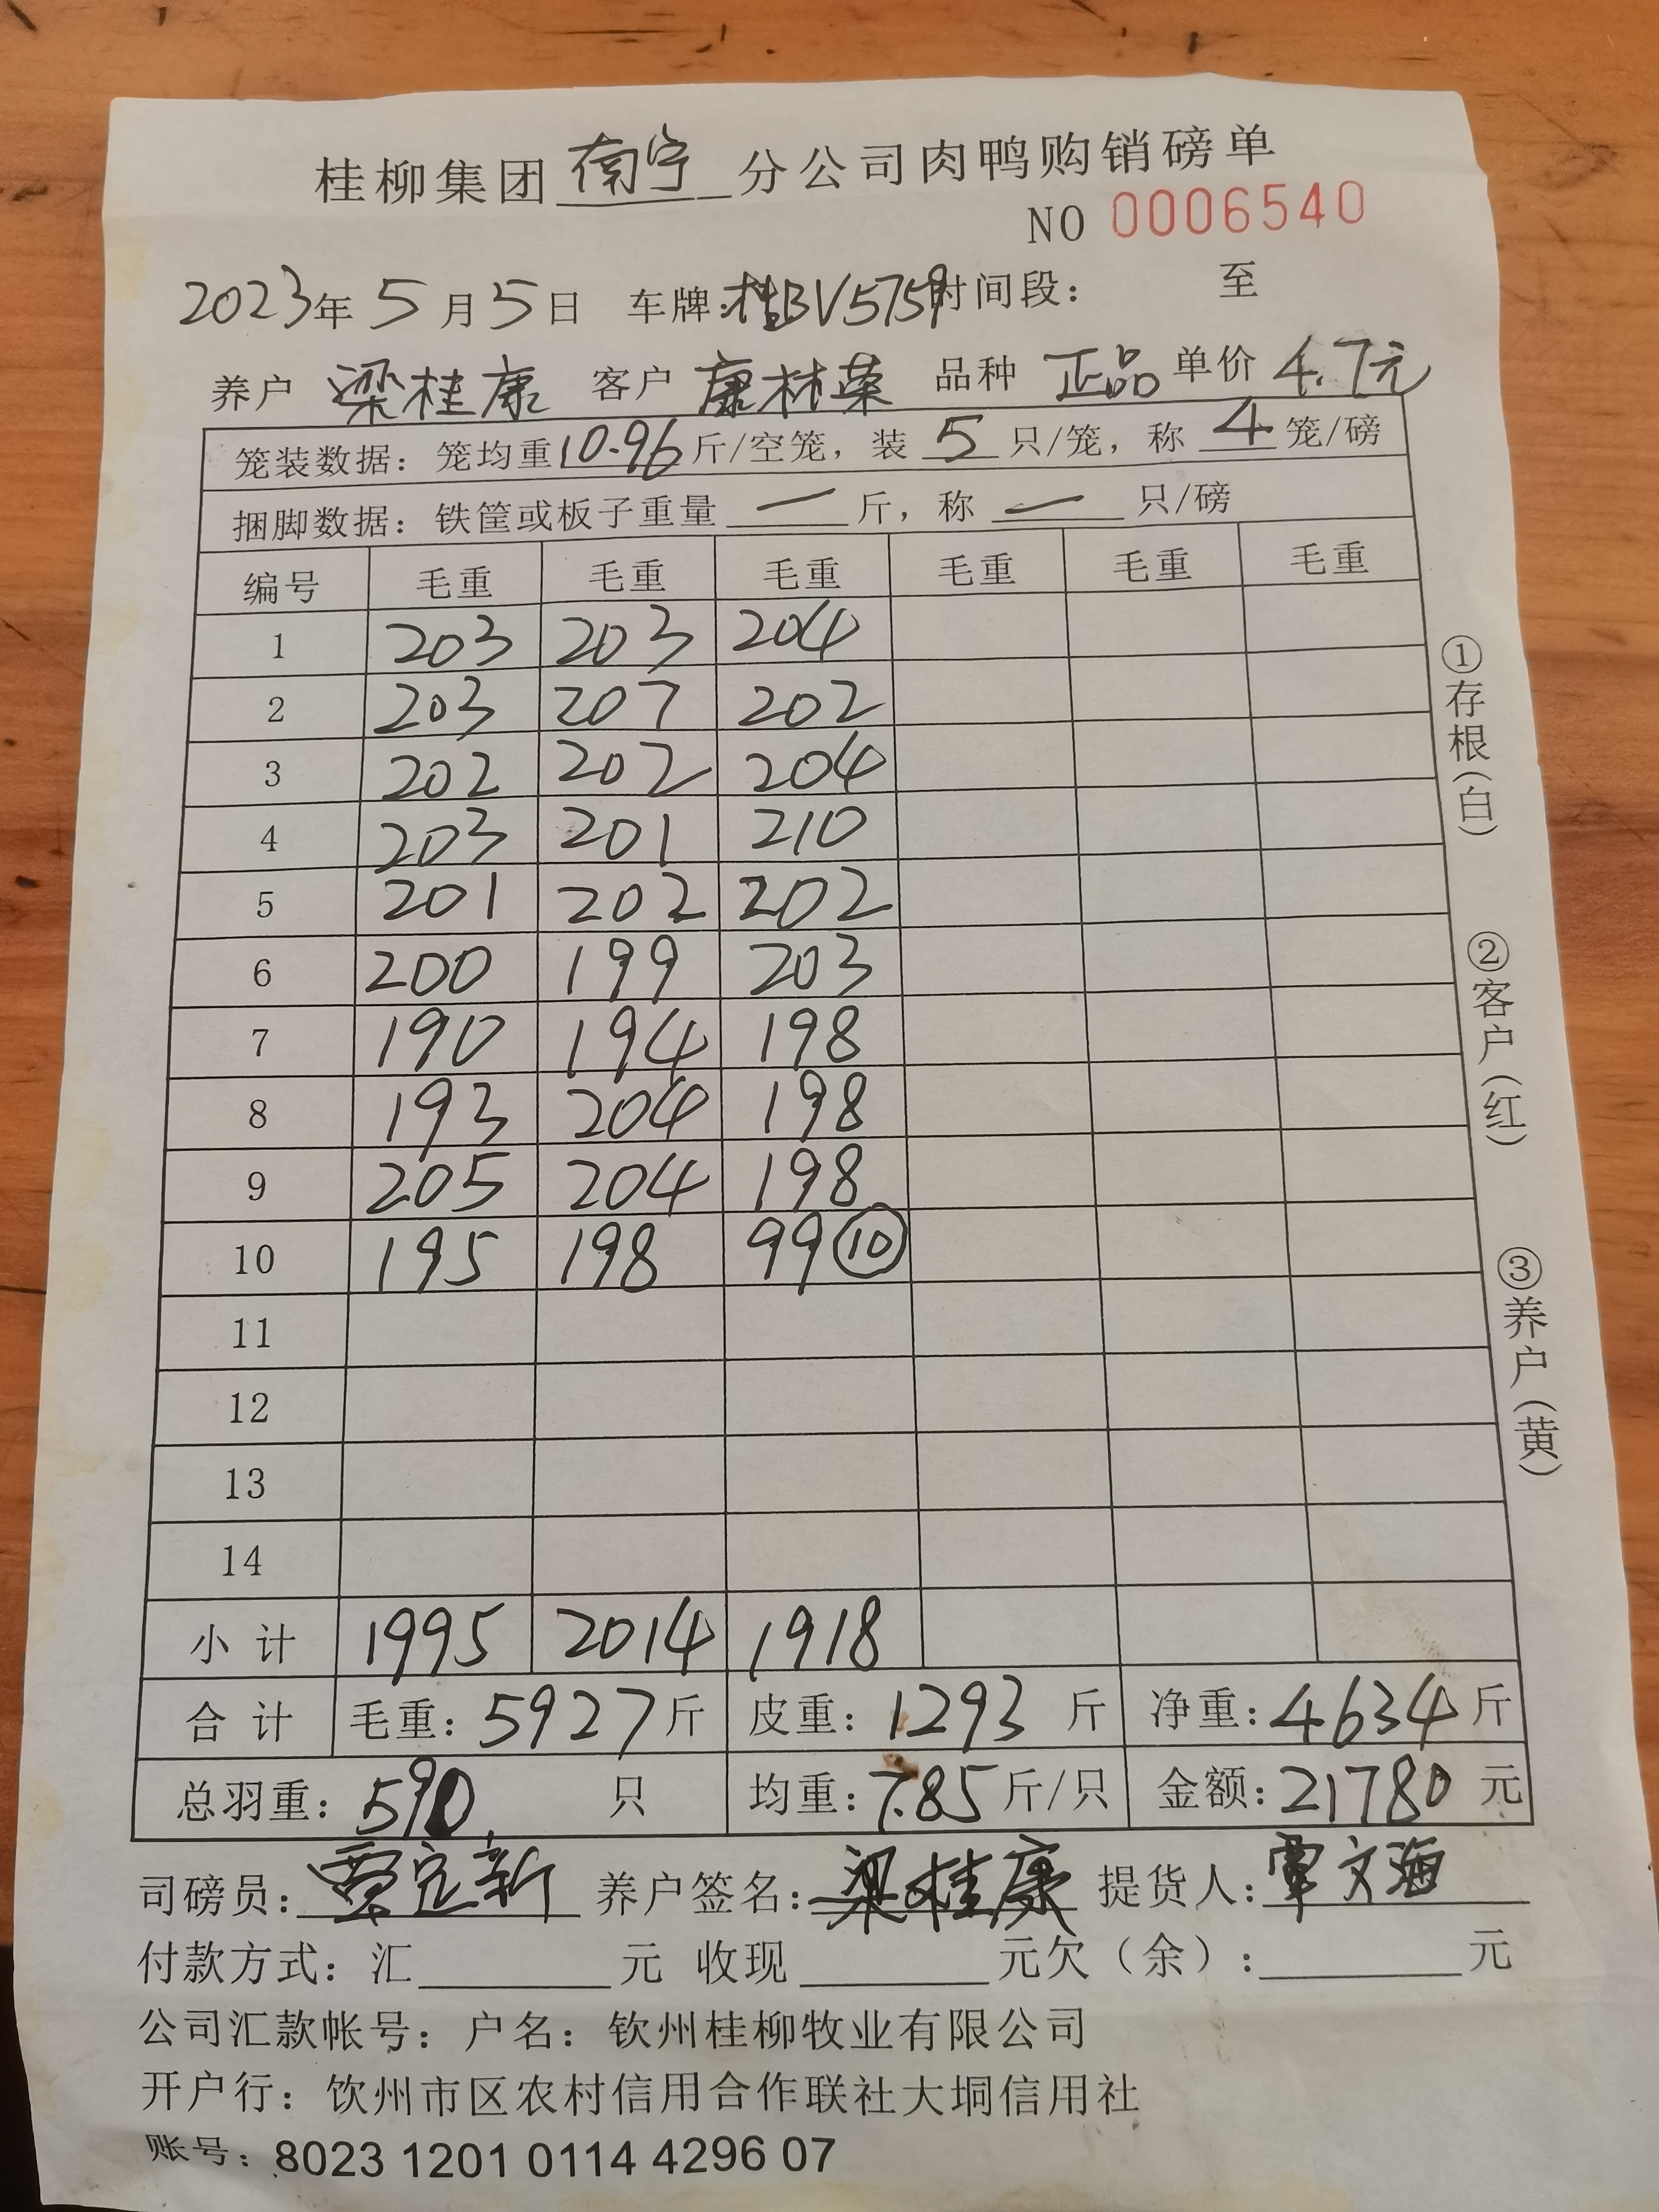 桂柳集团南宁分公司肉鸭购销磅单
NO 0006540
2023年5月5日 车牌:桂BV5759时间段: 至
养户 梁桂康 客户 康林荣 品种 正品 单价 4.7元
笼装数据: 笼均重10.96斤/空笼, 装5只/笼, 称4笼/磅
捆脚数据: 铁筐或板子重量 — 斤, 称 — 只/磅
编号 毛重 毛重 毛重 毛重 毛重 毛重
1 203 203 204
2 203 207 202
3 202 202 204
4 203 201 210
5 201 202 202
6 200 199 203
7 190 194 198
8 193 204 198
9 205 204 198
10 195 198 99 ⑩
11
12
13
14
小计 1995 2014 1918
合计 毛重: 5927斤 皮重: 1293 斤 净重: 4634斤
总羽重: 590 只 均重: 7.85斤/只 金额: 21780 元
司磅员: 定新 养户签名: 梁桂康 提货人: 覃文海
付款方式: 汇 元 收现 元欠(余): 元
公司汇款帐号: 户名: 钦州桂柳牧业有限公司
开户行: 饮州市区农村信用合作联社大垌信用社
账号: 8023 1201 0114 4296 07
①存根(白)
②客户(红)
③养户(黄)